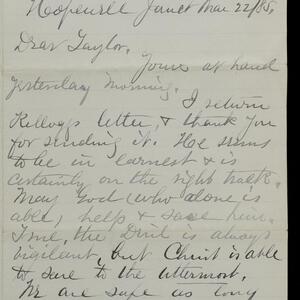 Hopewell Junct Mar 22/85.
Dear Taylor,
Yours at hand
yesterday morning.
I return
Kellogs letter, & thank you
for sending it. He seems
to be in earnest & is
certainly on the right track.
May God (who alone is
able) help & save him.
True, the Devil is always
vigilant, but Christ is able
to save to the uttermost.
We are safe as long